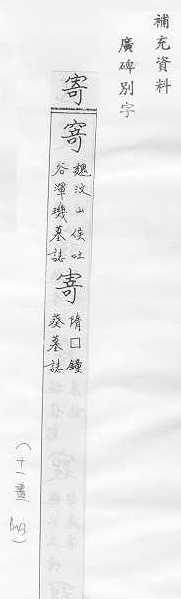 補充資料
廣碑別字
寄
魏汶山侯吐
谷渾璣墓誌
寄
隋口鐘
葵墓誌
(十一畫